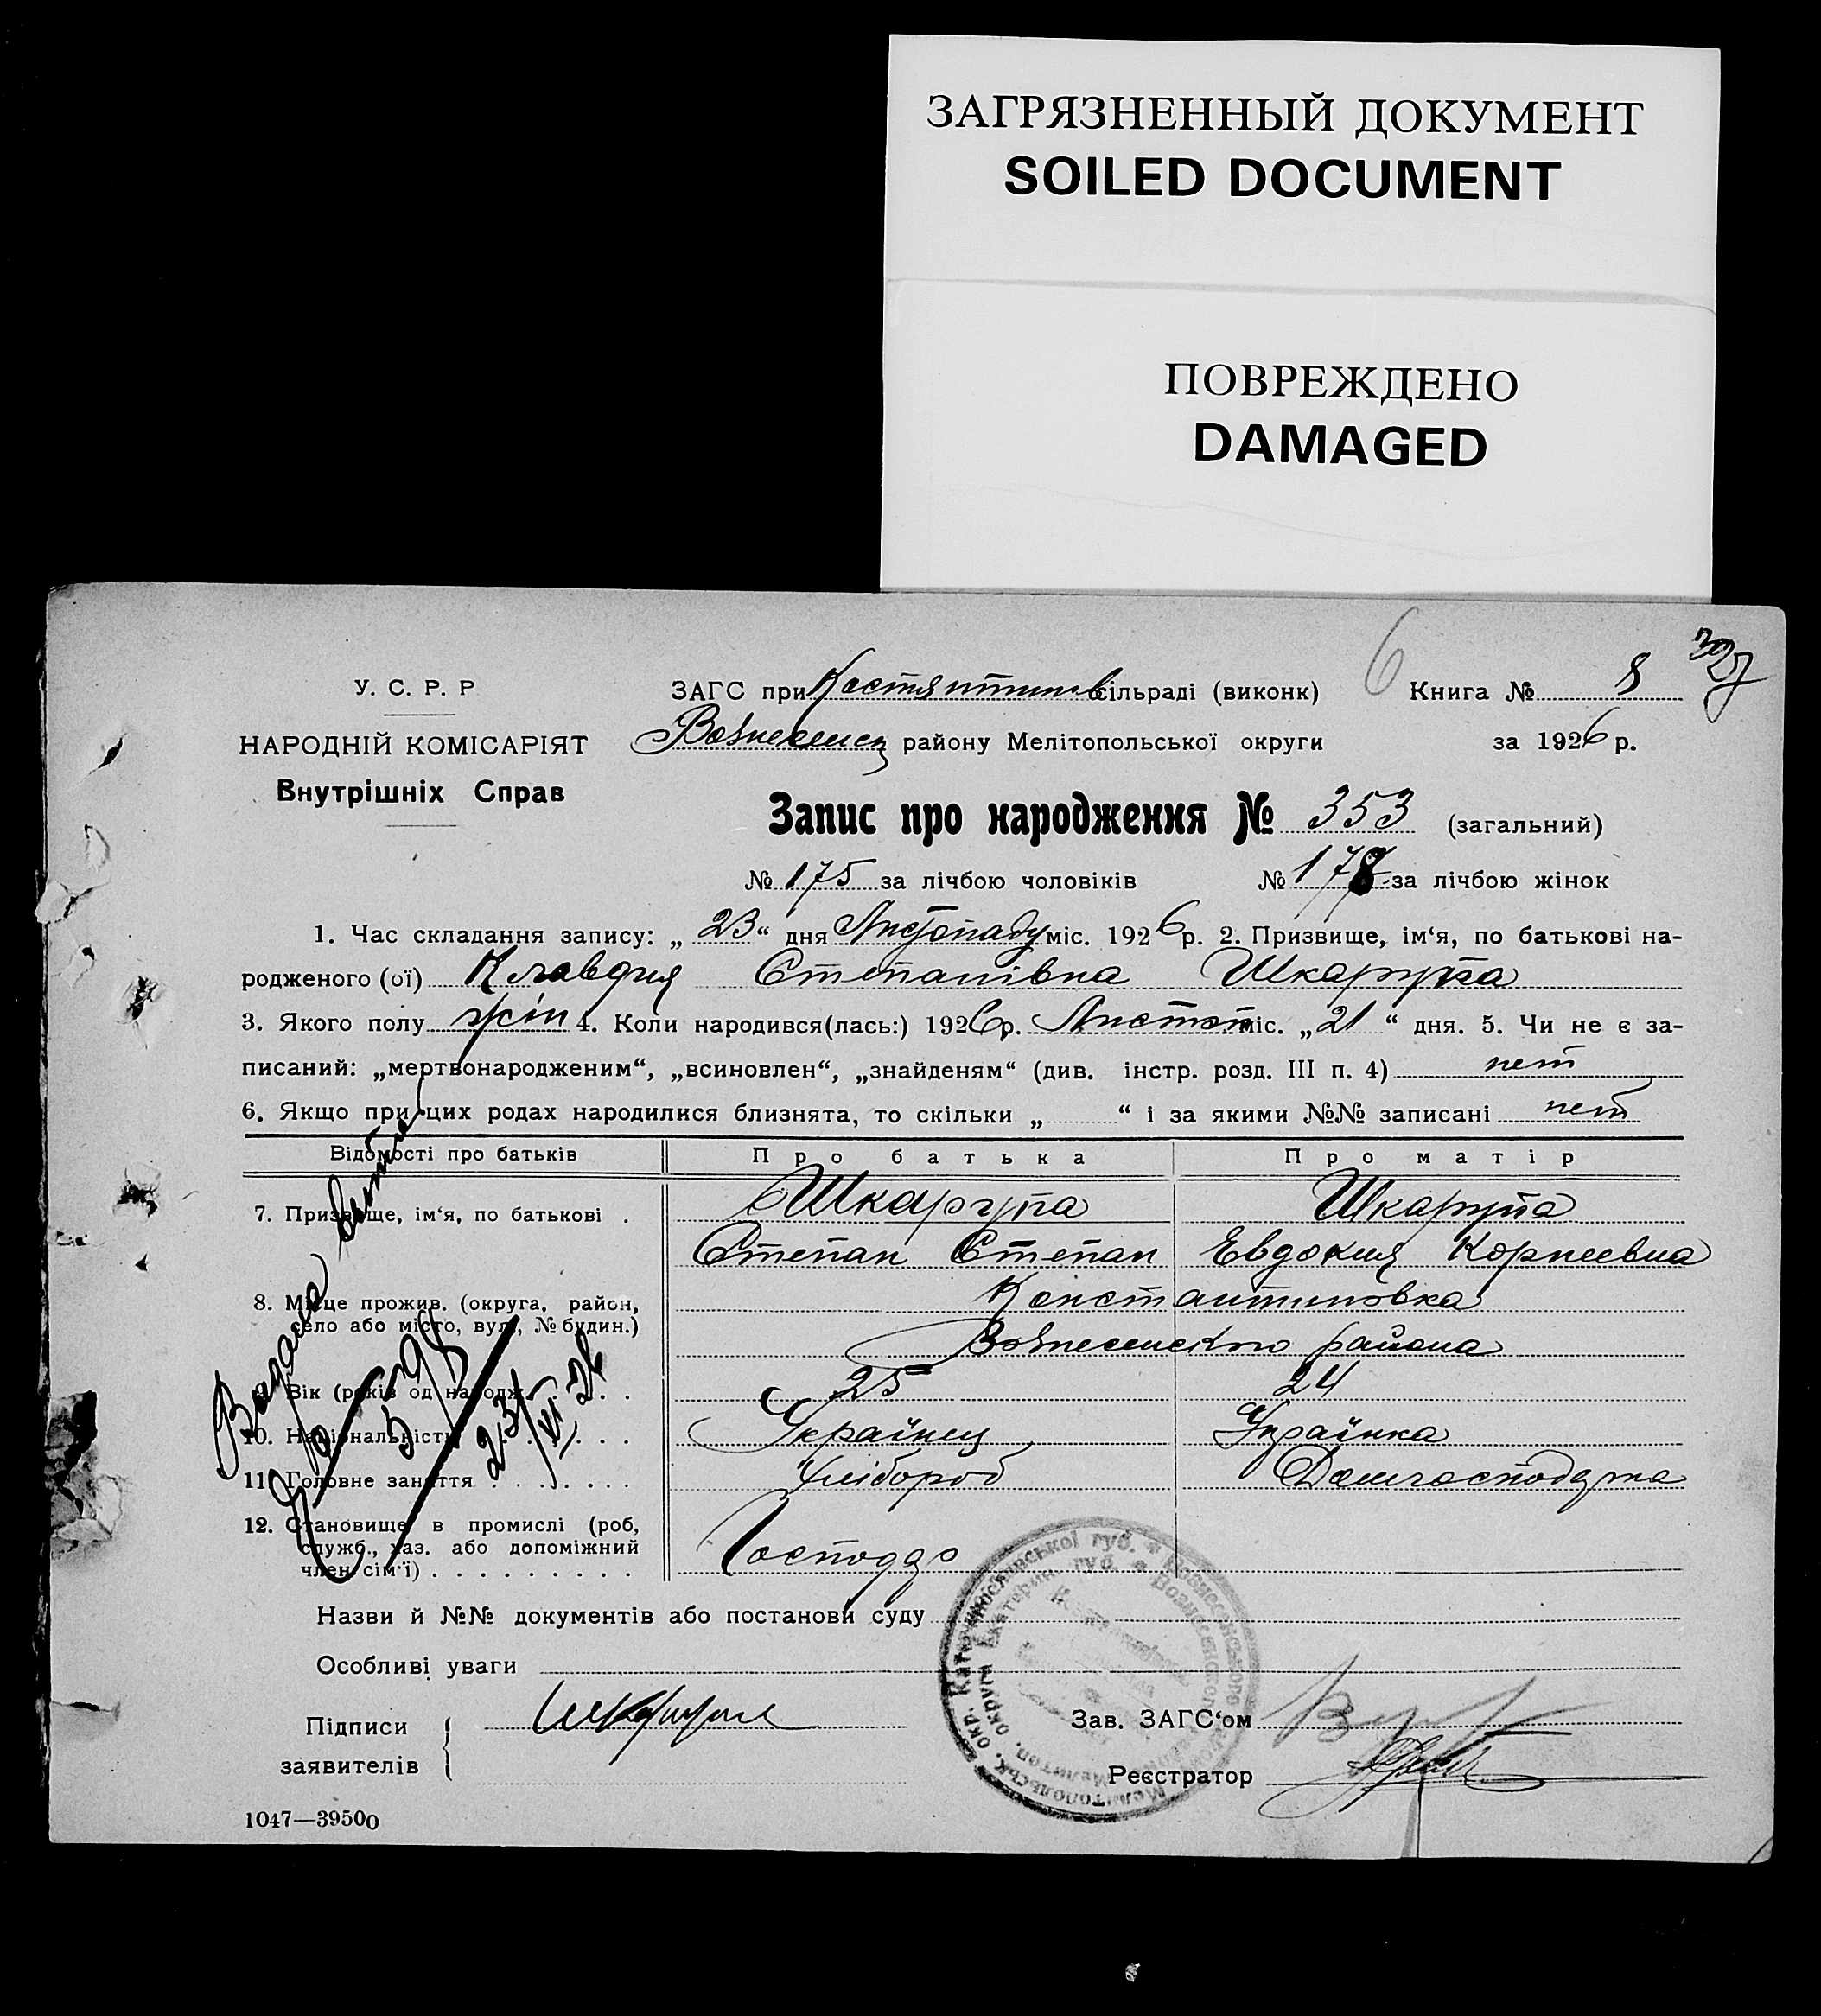 ЗАГРЯЗНЕННЫЙ ДОКУМЕНТ
SOILED DOCUMENT
ПОВРЕЖДЕНО
DAMAGED
6 327
У. С. Р. Р
НАРОДНІЙ КОМІСАРІЯТ
Внутрішніх Справ
ЗАГС при Костянтинов сільраді (виконк) Книга № 8
Вознесенск району Мелітопольської округи за 1926 р.
Запис про народження № 353 (загальний)
№ 175 за лічбою чоловіків № 178 за лічбою жінок
1. Час складання запису: „ 23 “ дня Листопаду міс. 1926 р. 2. Призвище, ім‘я, по батькові на-
родженого (ої) Клавдия Степанівна Шкарупа
3. Якого полу жін 4. Коли народився(лась:) 1926 р. Листоп міс. „ 21 “ дня. 5. Чи не є за-
писаний: „мертвонародженим“, „всиновлен“, „знайденям“ (див. інстр. розд. III п. 4) нет
6. Якщо при цих родах народилися близнята, то скільки „ “ і за якими №№ записані нет
Відомості про батьків Про батька Про матір
7. Призвище, ім‘я, по батькові . Шкарупа Шкарупа
Степан Степан Евдокия Корнеевна
8. Місце прожив. (округа, район, Константиновка
село або місто, вул., № будин.) Вознесенского района
9. Вік (років од народж. . . . 25 24
10. Національність . . . Українец Українка
11. Головне заняття . . . . . . . Хлібороб Домгосподарка
12. Становище в промислі (роб,
служб., хаз. або допоміжний
член сім‘ї) . . . . . . . . . Господар
Видана
23/VI 26
Назви й №№ документів або постанови суду
Особливі уваги
Підписи
заявителів
Шкарупа
Зав. ЗАГС‘ом
Реєстратор
1047—39500